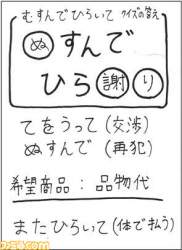 むすんでひらいて クイズの答え
ぬすんで
ひら謝り
てをうって(交渉)
ぬすんで(再犯)
希望商品:品物代
またひらいて(体で払う)
ファミ通.com